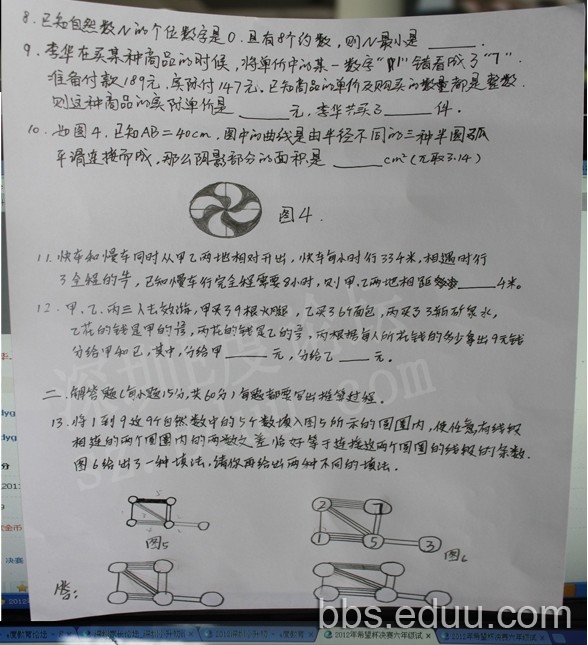 8. 已知自然数N的个位数字是0，且有8个约数，则N最小是____.
9. 李华在买某种商品的时候，将单价中的某一数字"
"错看成了"1"，
准备付款189元，实际付147元。已知商品的单价及购买的数量都是整数，
则这种商品的实际单价是____元，李华共买了____件.
10. 如图4，已知AB=40cm，图中的曲线是由半径不同的三种半圆弧
平滑连接而成，那么阴影部分的面积是____cm²(π取3.14)
图4.
11. 快车和慢车同时从甲乙两地相对开出，快车每小时行33千米，相遇时行
了全程的
，已知慢车行完全程需要8小时，则甲、乙两地相距
____千米。
12. 甲、乙、丙三人去
，甲买了9根火腿，乙买了6个面包，丙买了3瓶矿泉水，
乙花的钱是甲的
，丙花的钱是乙的
，丙根据每人所花钱的多少拿出9元钱
分给甲和乙，其中，分给甲____元，分给乙____元。
二、解答题(每小题15分，共60分)每题都要写出推算过程。
13. 将1到9这9个自然数中的5个数填入图5所示的圆圈内，使任意有线段
相连的两个圆圈内的两数之差恰好等于连接这两个圆圈的线段的条数.
图6给出了一种填法，请你再给出两种不同的填法.
图5
2 7
1 5 3
图6
答：
bbs.eduu.com
2012年希望杯决赛六年级试
2012年希望杯决赛六年级试